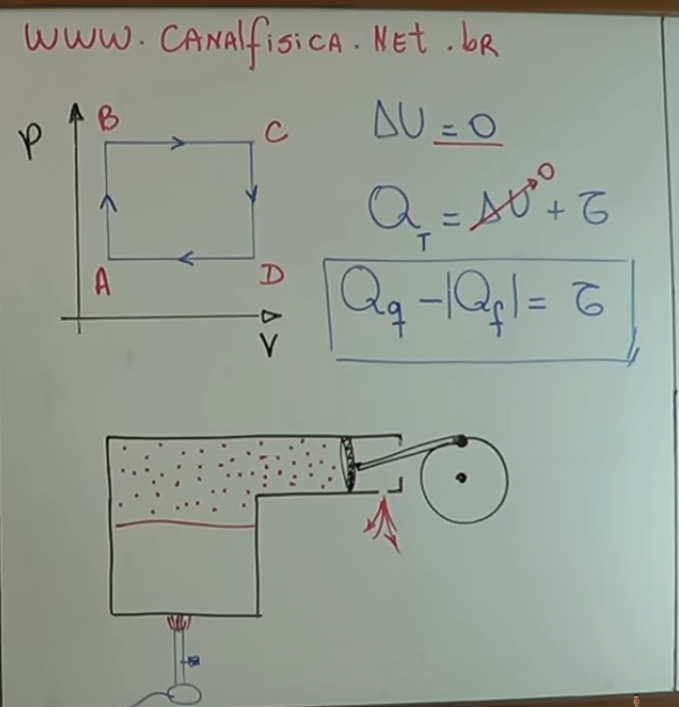 WWW.CANAlfisiCA.NEt.bR
P
B
C
A
D
V
ΔU = 0
Q_T = ΔU + τ
0
Q_q - |Q_f| = τ